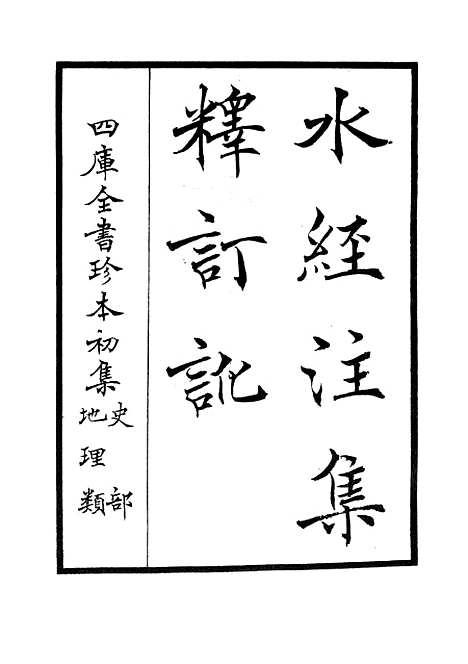 水經注集
釋訂訛
四庫全書珍本初集
史部
地理類